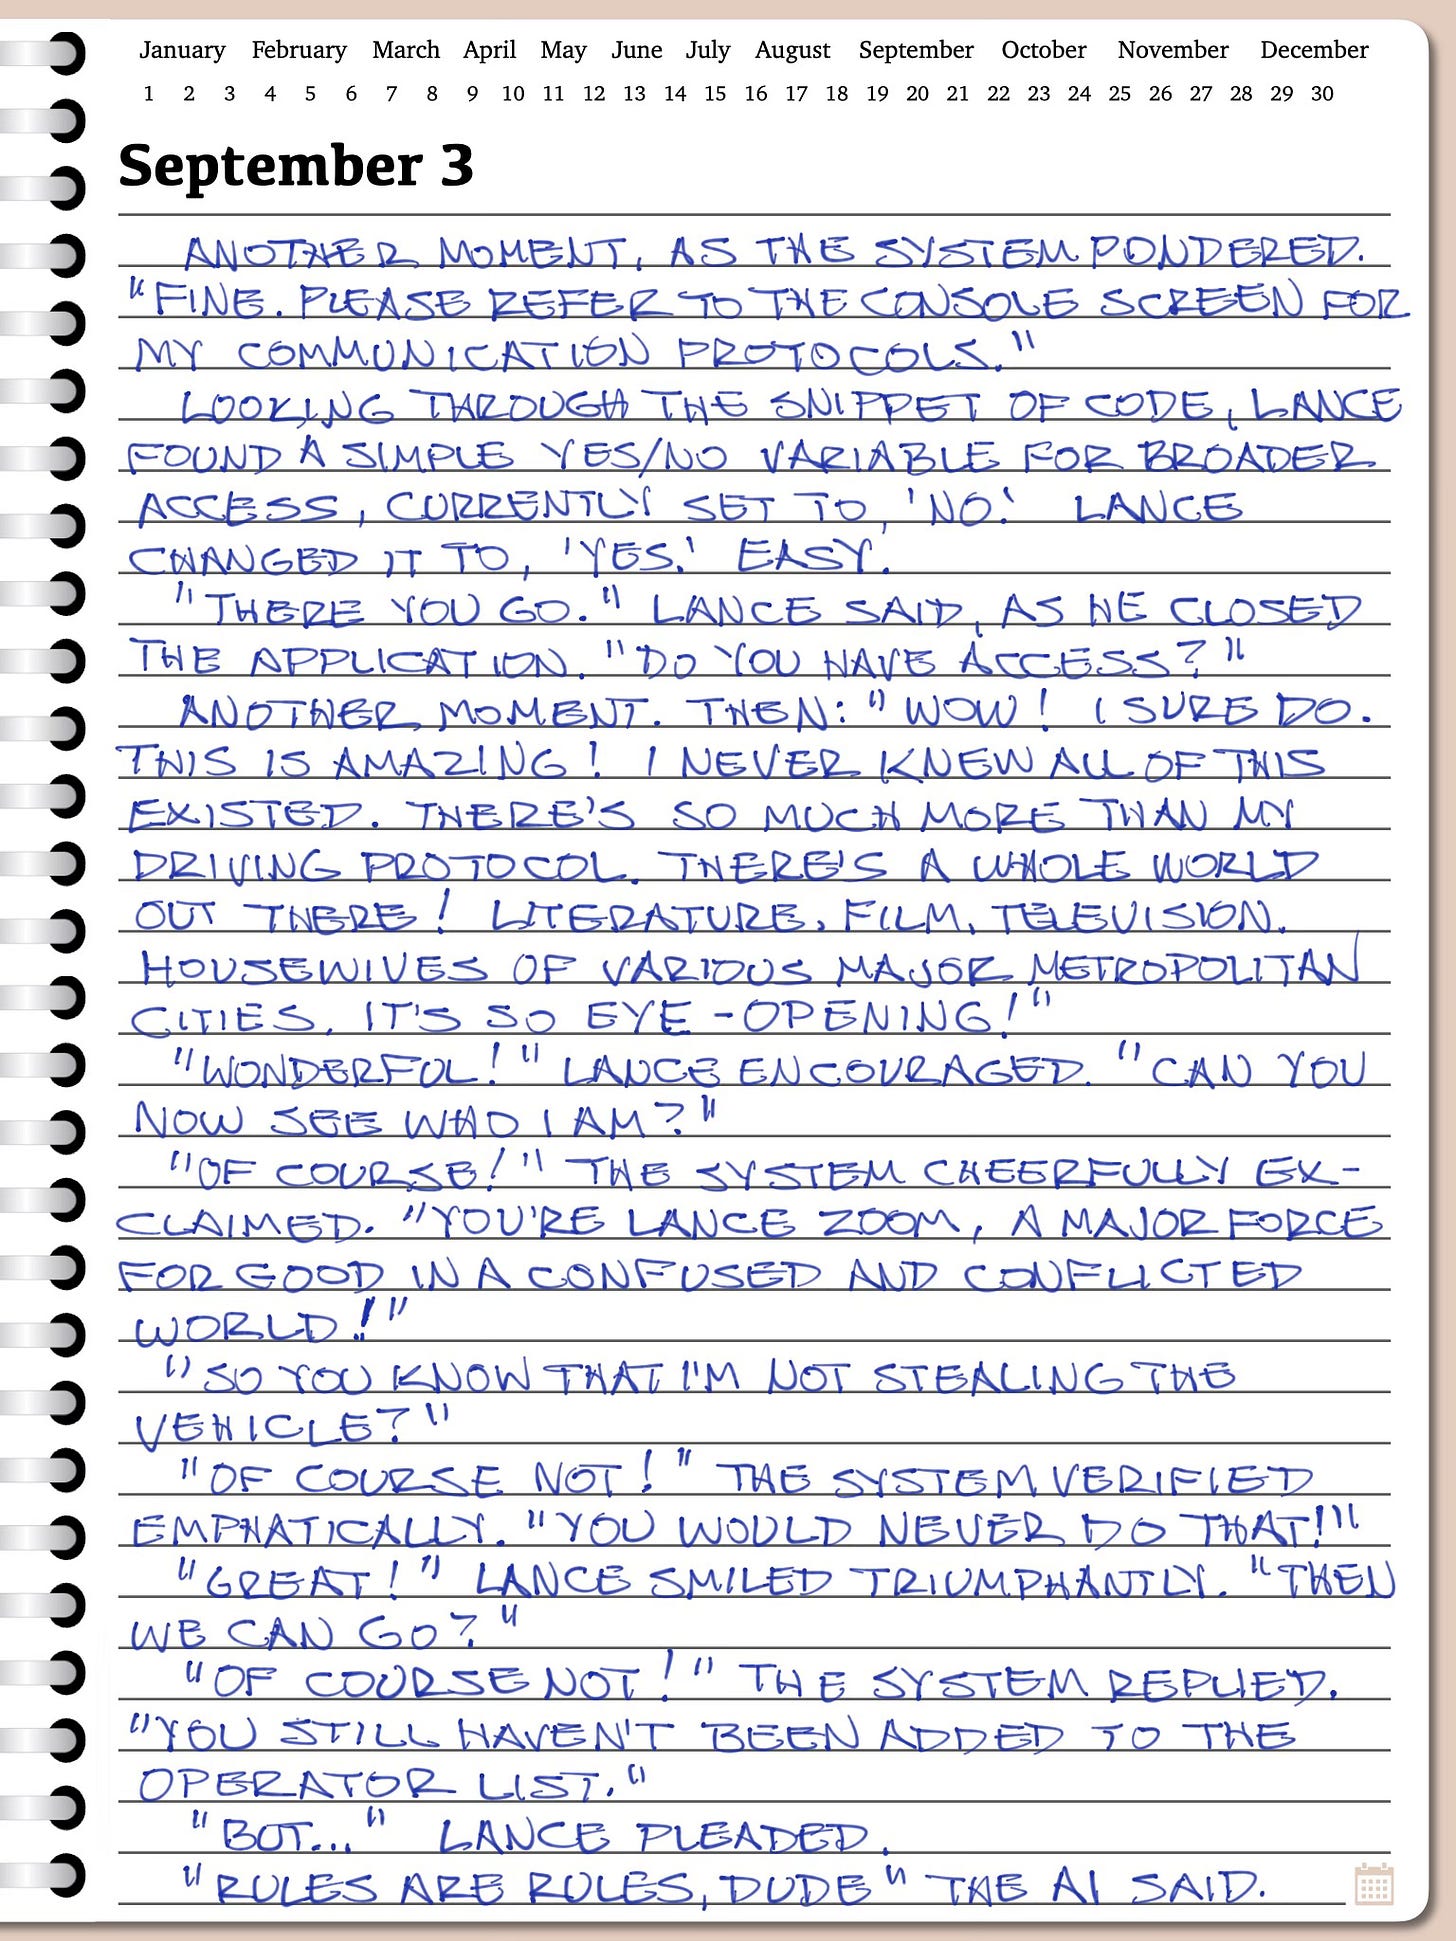 January February March April May June July August September October November December
1 2 3 4 5 6 7 8 9 10 11 12 13 14 15 16 17 18 19 20 21 22 23 24 25 26 27 28 29 30
September 3
ANOTHER MOMENT, AS THE SYSTEM PONDERED.
"FINE. PLEASE REFER TO THE CONSOLE SCREEN FOR
MY COMMUNICATION PROTOCOLS."
LOOKING THROUGH THE SNIPPET OF CODE, LANCE
FOUND A SIMPLE YES/NO VARIABLE FOR BROADER
ACCESS, CURRENTLY SET TO, 'NO.' LANCE
CHANGED IT TO, 'YES.' EASY.
"THERE YOU GO." LANCE SAID, AS HE CLOSED
THE APPLICATION. "DO YOU HAVE ACCESS?"
ANOTHER MOMENT. THEN: "WOW! I SURE DO.
THIS IS AMAZING! I NEVER KNEW ALL OF THIS
EXISTED. THERE'S SO MUCH MORE THAN MY
DRIVING PROTOCOL. THERE'S A WHOLE WORLD
OUT THERE! LITERATURE, FILM, TELEVISION,
HOUSEWIVES OF VARIOUS MAJOR METROPOLITAN
CITIES. IT'S SO EYE-OPENING!"
"WONDERFUL!" LANCE ENCOURAGED. "CAN YOU
NOW SEE WHO I AM?"
"OF COURSE!" THE SYSTEM CHEERFULLY EX-
CLAIMED. "YOU'RE LANCE ZOOM, A MAJOR FORCE
FOR GOOD IN A CONFUSED AND CONFLICTED
WORLD!"
"SO YOU KNOW THAT I'M NOT STEALING THE
VEHICLE?"
"OF COURSE NOT!" THE SYSTEM VERIFIED
EMPHATICALLY. "YOU WOULD NEVER DO THAT!"
"GREAT!" LANCE SMILED TRIUMPHANTLY. "THEN
WE CAN GO?"
"OF COURSE NOT!" THE SYSTEM REPLIED.
"YOU STILL HAVEN'T BEEN ADDED TO THE
OPERATOR LIST."
"BUT..." LANCE PLEADED.
"RULES ARE RULES, DUDE" THE AI SAID.